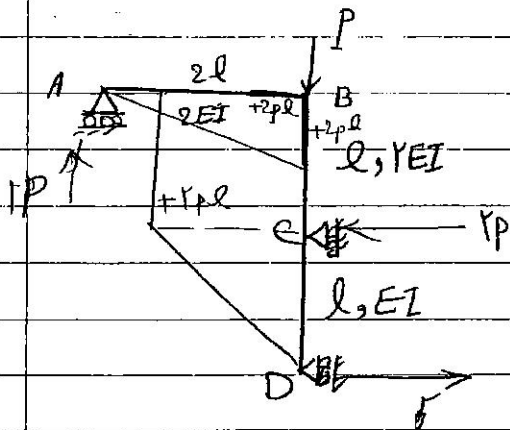 P
A
2l
B
2EI
+2pl
+2pl
l, ۲EI
۱P
+۲pl
C
۲p
l, EI
D